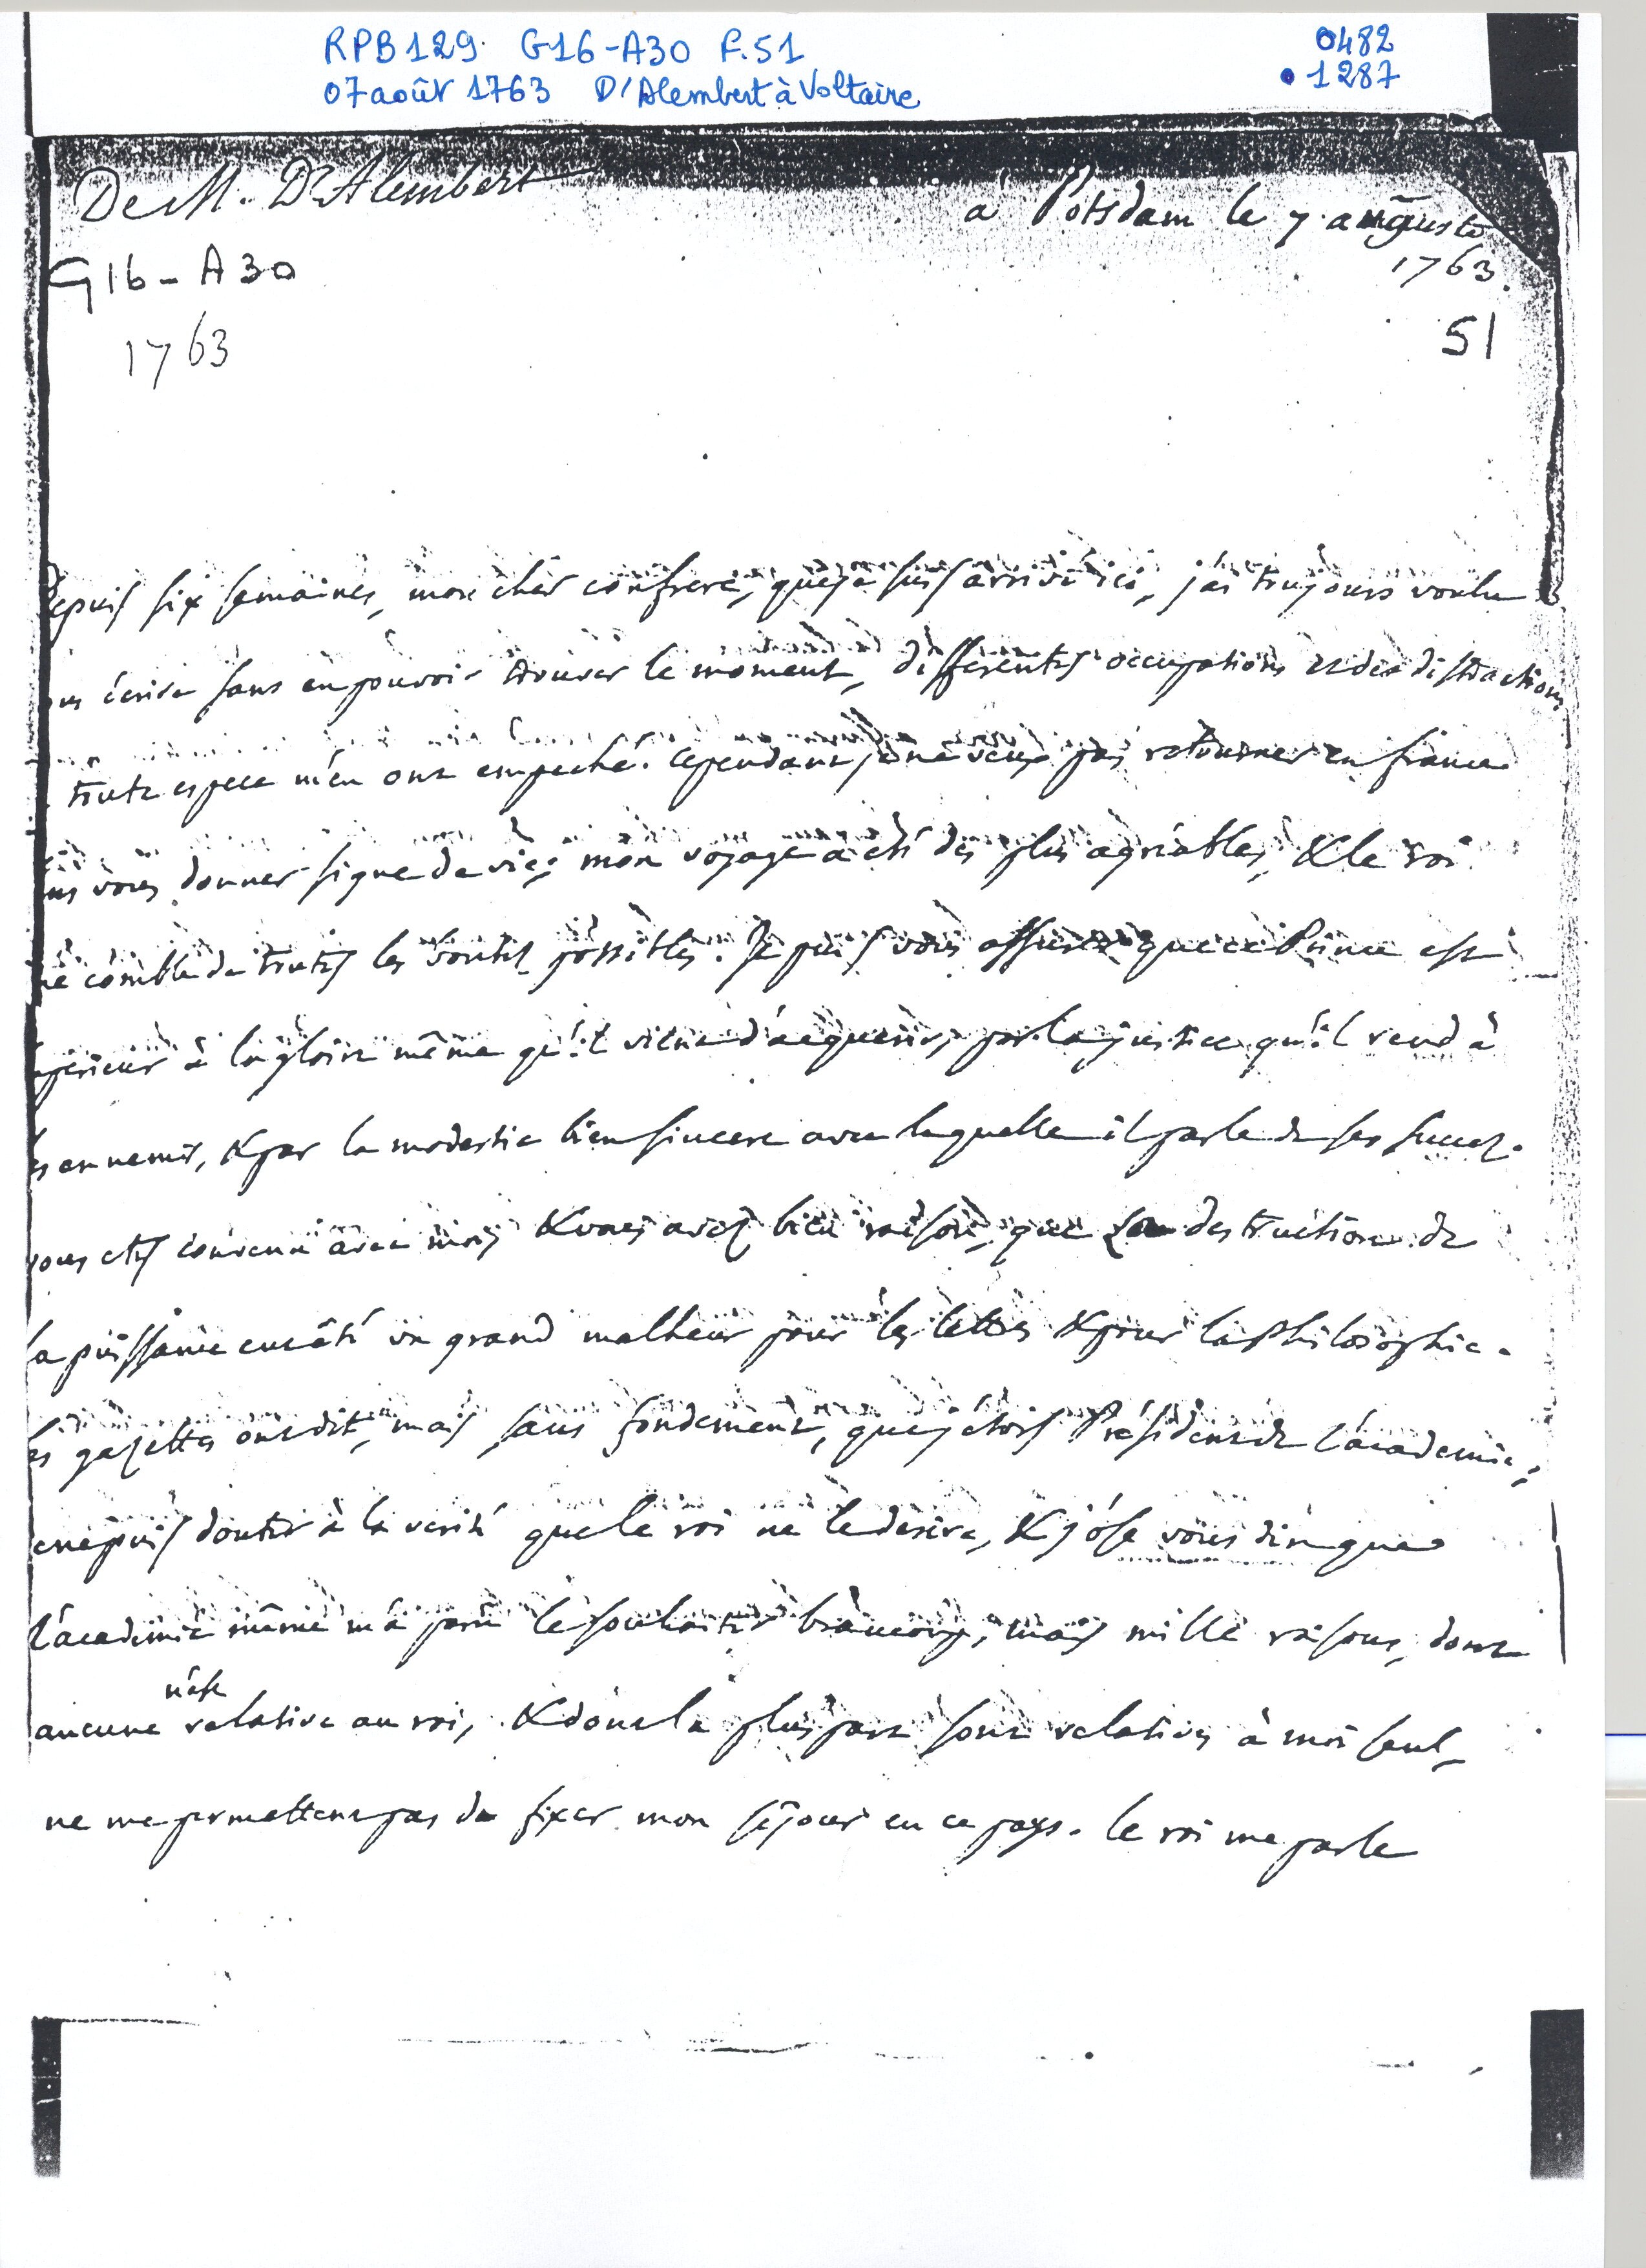 RPB129 G16-A30 F.51
07 août 1763 D'Alembert à Voltaire
0482
1287
De M. D'Alembert
à Potsdam le 7 auguste
1763.
G16-A30
1763
51
Depuis six semaines, mon cher confrere, que je suis arrivé ici, j'ai toujours voulu
ous écrire sans en pouvoir trouver le moment, differentes occupations et des distractions
toute espece m'en ont empeché. cependant je ne veux pas retourner en france
ns vous donner signe de vie; mon voyage a été des plus agréables, & le roi
me comble de toutes les bontés possibles. Je puis vous assurer que ce Prince est
uperieur à la gloire même qu'il vient d'acquerir, par la justice qu'il rend à
es ennemis, & par la modestie bien sincere avec laquelle il parle de ses succez.
vous etes convenu avec moi, & vous avez bien raison, que la destruction de
sa puissance eut été un grand malheur pour les lettres & pour la Philosophie.
les gazettes ont dit, mais sans fondement, que j'etois Président de l'academie;
je ne puis douter à la verité que le roi ne le desire, & j'ose vous dire que
l'academie même m'a paru le souhaiter beaucoup; mais mille raisons, dont
aucune n'est relative au roi, & dont la pluspart sont relatives à moi seul,
ne me permettent pas de fixer mon séjour en ce pays. le roi me parle